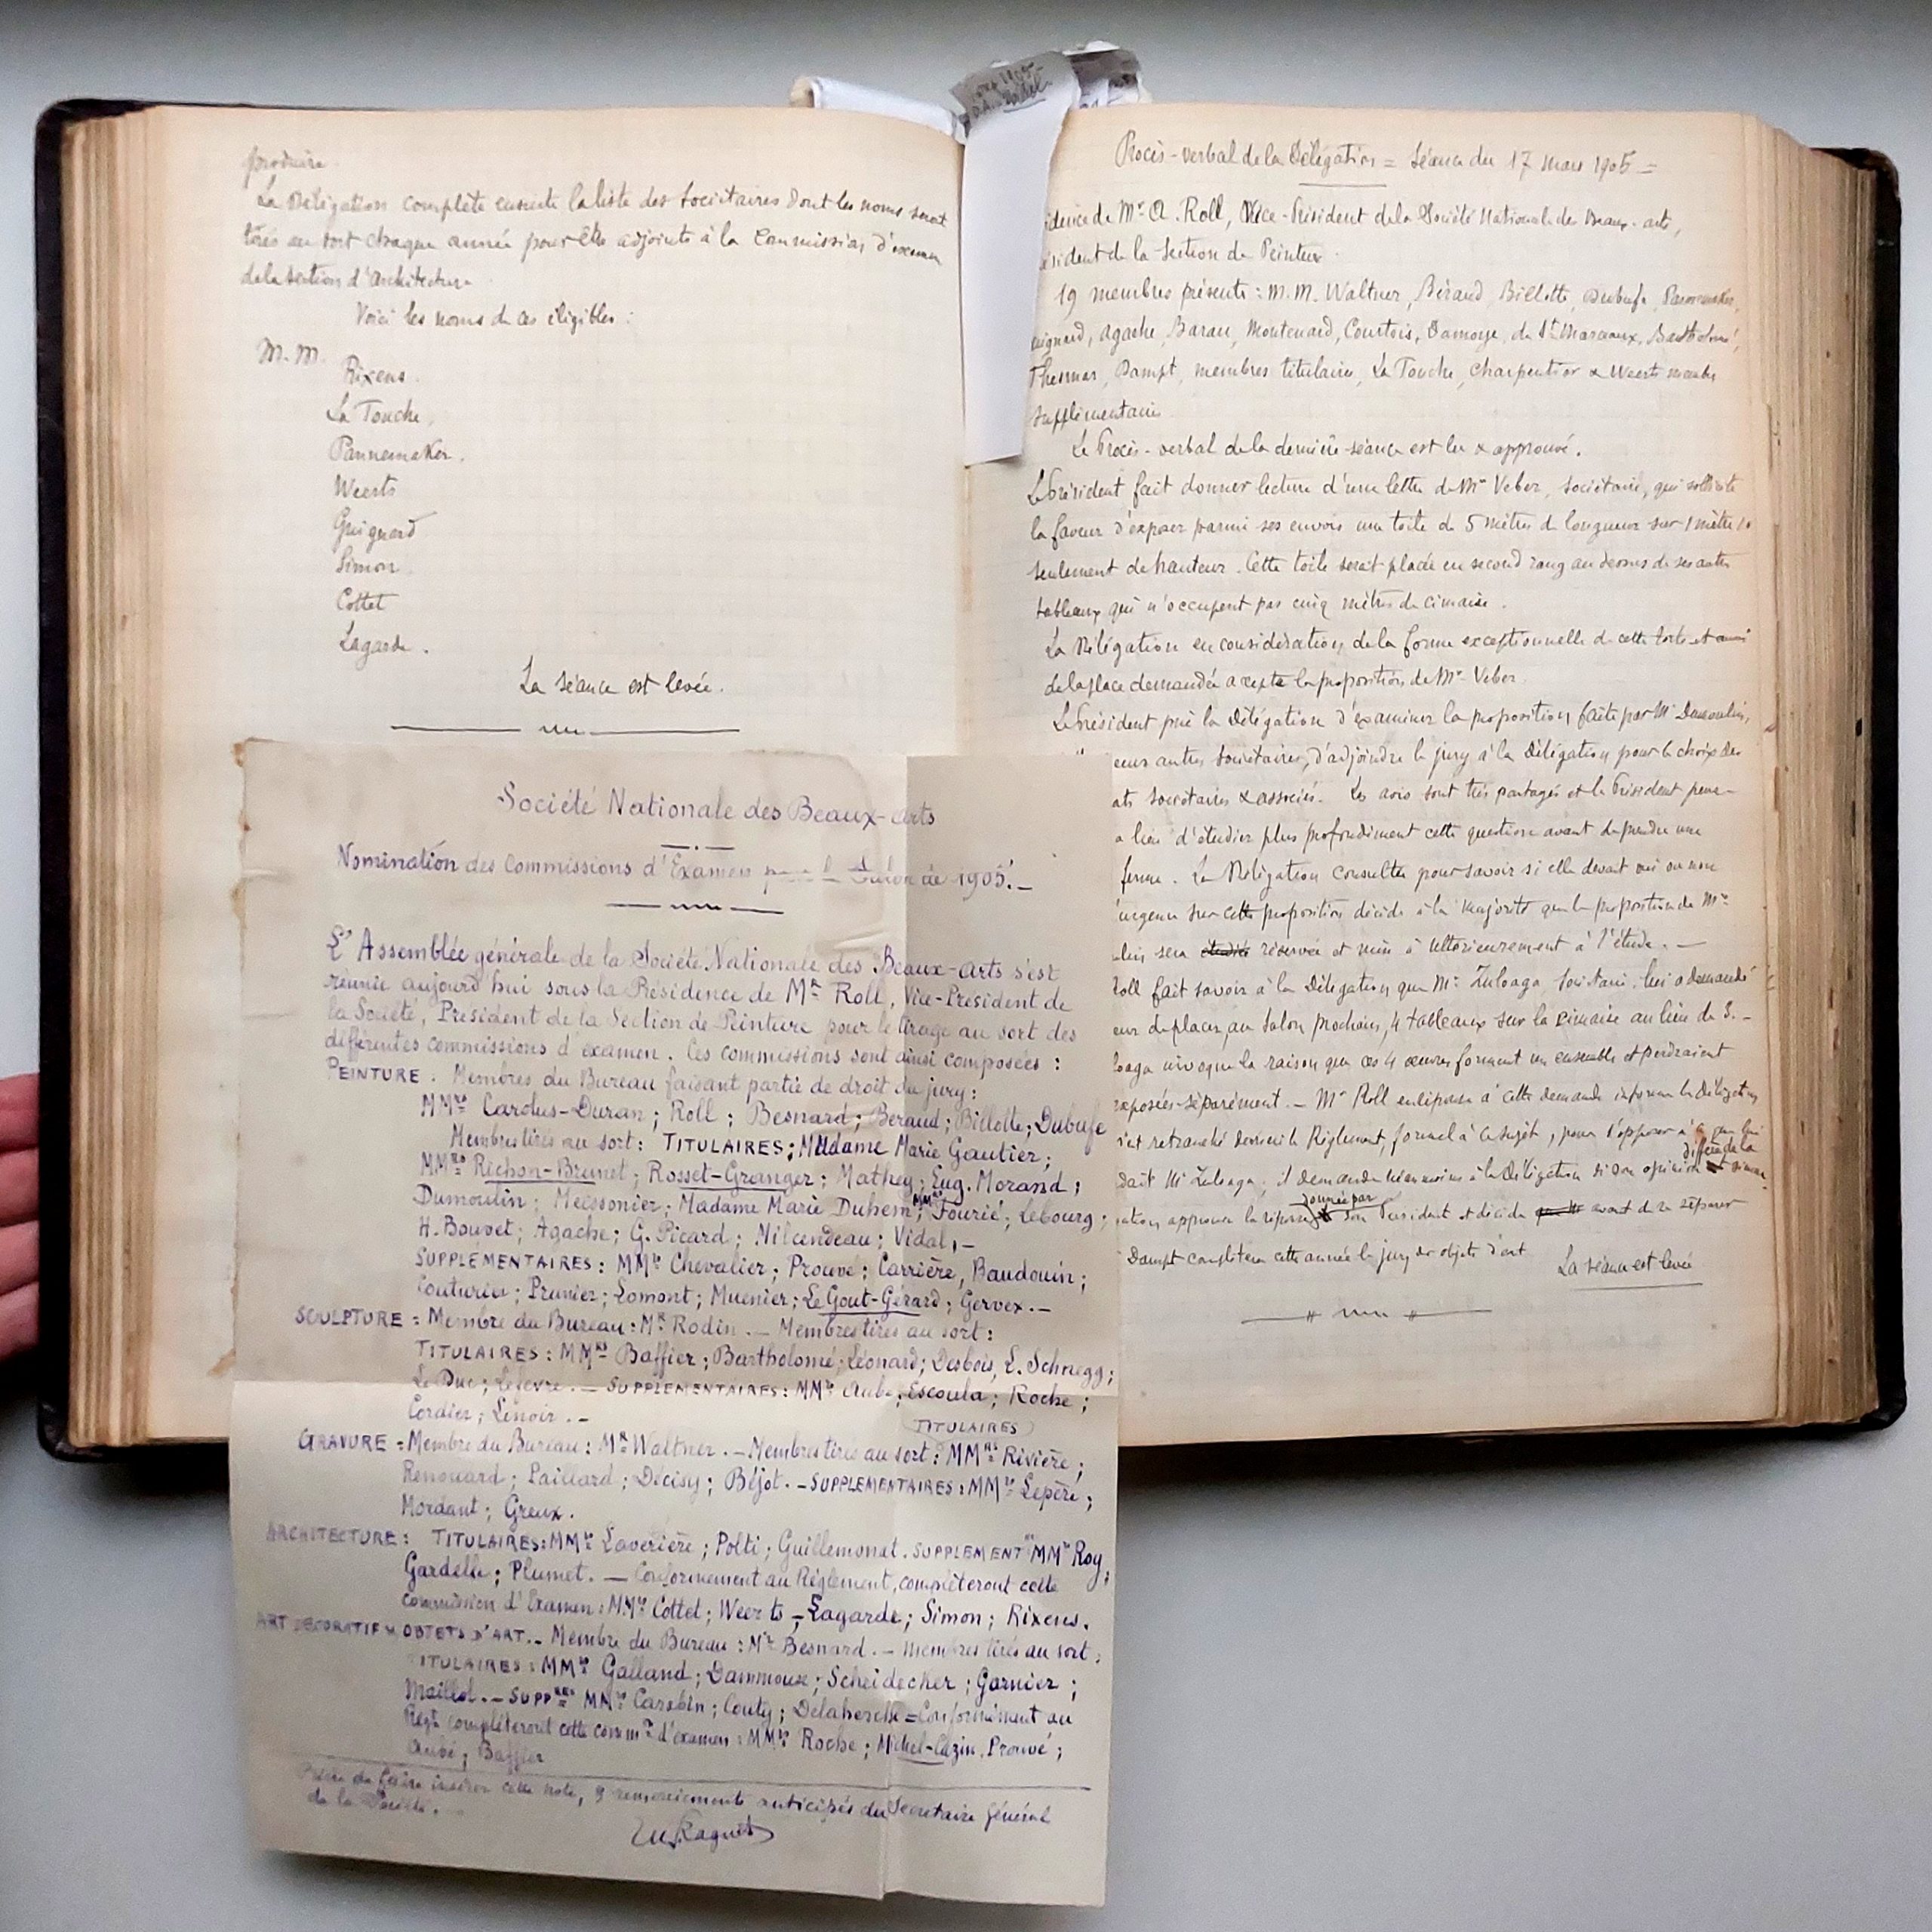 produire
La Délégation complète ensuite la liste des Sociétaires dont les noms seront
tirés au sort chaque année pour être adjoints à la Commission d'examen
de la Section d'Architecture
Voici les noms de ces éligibles :
M.M.
Rixens
La Touche
Pannemaker.
Weerts
Guignard
Simon
Cottet
Lagarde.
La séance est levée.
Société Nationale des Beaux-Arts
Nomination des Commissions d'Examen pour le Salon de 1905._
L'Assemblée générale de la Société Nationale des Beaux-Arts s'est
réunie aujourd'hui sous la Présidence de Mr Roll, Vice-Président de
la Société, Président de la Section de Peinture pour le tirage au sort des
différentes commissions d'examen. Ces commissions sont ainsi composées :
PEINTURE. Membres du Bureau faisant partie de droit du jury :
MMrs Carolus-Duran ; Roll ; Besnard ; Beraud ; Billotte ; Dubufe
Membres tirés au sort : TITULAIRES : Madame Marie Gautier ;
MMrs Richon-Brunet ; Rosset-Granger ; Mathey ; Eug. Morand ;
Dumoulin ; Meissonier ; Madame Marie Duhem ; MMrs Fourié ; Lebourg ;
H. Bouvet ; Agache ; G. Picard ; Milcendeau ; Vidal, _
SUPPLÉMENTAIRES : MMrs Chevalier ; Prouvé ; Carrière, Baudouin ;
Couturier ; Prunier ; Lomont ; Muenier ; Le Gout-Gérard ; Gervex._
SCULPTURE = Membre du Bureau : Mr Rodin. _ Membres tirés au sort :
TITULAIRES : MMrs Baffier ; Bartholomé ; Léonard ; Desbois, L. Schnegg ;
Le Duc ; Lefevre. _ SUPPLÉMENTAIRES : MMrs Aubé ; Escoula ; Roche ;
Cordier ; Lenoir. _
TITULAIRES
GRAVURE = Membre du Bureau : Mr Waltner. _ Membres tirés au sort : MMrs Rivière ;
Renouard ; Paillard ; Décisy ; Béjot. _ SUPPLÉMENTAIRES : MMrs Lepère ;
Mordant ; Greux.
ARCHITECTURE : TITULAIRES : MMrs Laverière ; Polti ; Guillemonat. SUPPLEMENTres MMrs Roy ;
Gardelle ; Plumet. _ Conformément au Règlement, complèteront cette
commission d'Examen : MMrs Cottet ; Weerts _ Lagarde ; Simon ; Rixens.
ART DÉCORATIF & OBJETS D'ART._ Membre du Bureau : Mr Besnard. _ Membres tirés au sort :
TITULAIRES : MMrs Galland ; Dammouse ; Scheidecker ; Garnier ;
Maillol. _ SUPPres MMrs Carabin ; Couty ; Delaherche = Conformément au
Règt complèteront cette common d'examen : MMrs Roche ; Michel-Cazin, Prouvé ;
Aubé ; Baffier
Prière de faire insérer cette note, & remerciements anticipés du Secrétaire Général
de la Société.
Procès-verbal de la Délégation = Séance du 17 mars 1905 =
idence de Mr A. Roll, Vice-Président de la Société Nationale des Beaux-arts,
ésident de la Section de Peinture
19 membres présents : M.M. Waltner, Béraud, Billotte, Dubufe, Pannemaker,
uignard, Agache, Barau, Montenard, Courtois, Damoye, de St Marceaux, Bartholomé,
Thesmar, Dampt, membres titulaires, La Touche, Charpentier & Weerts membres
supplémentaires
Le Procès-verbal de la dernière séance est lu & approuvé.
Le Président fait donner lecture d'une lettre de Mr Veber, sociétaire, qui sollicite
la faveur d'exposer parmi ses envois une toile de 5 mètres de longueur sur 1 mètre
seulement de hauteur. Cette toile serait placée en second rang au dessus de ses autres
tableaux qui n'occupent pas cinq mètres de cimaise.
La Délégation en considération de la forme exceptionnelle de cette toile et aussi
de la place demandée accepte la proposition de Mr Veber.
Le Président prie la Délégation d'examiner la proposition faite par Mr Dumoulin,
eurs autres sociétaires, d'adjoindre le jury à la Délégation pour le choix des
ats sociétaires & associés. Les avis sont très partagés et le Président pense
a lieu d'étudier plus profondément cette question avant de prendre une
ferme. La Délégation consultée pour savoir si elle devait oui ou non
urgence sur cette proposition décide à la majorité que la proposition de Mr
lin sera étudiée réservée et mise à ultérieurement à l'étude. _
Roll fait savoir à la Délégation que Mr Zuloaga, Sociétaire, lui a demandé
eur de placer, au Salon prochain, 4 tableaux sur la cimaise au lieu de 3. _
loaga invoque la raison que ces 4 œuvres forment un ensemble et perdraient
exposées séparément. _ Mr Roll en réponse à cette demande informe la Délégation
s'est retranché derrière le Règlement, formel à ce sujet, pour s'opposer à ce que lui
diffère de la
dait Mr Zuloaga ; il demande néanmoins à la Délégation si son opinion est sienne
donnée par
ation approuve la réponse son Président et décide avant de se séparer
Dampt complètera cette année le jury des objets d'art
La séance est levée